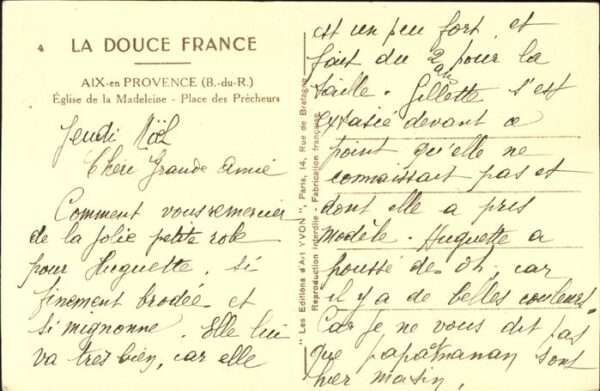 4
LA DOUCE FRANCE
AIX-en PROVENCE (B.-du-R.)
Église de la Madeleine - Place des Prêcheurs
Jeudi Noël
Chère Grande amie
Comment vous remercier
de la jolie petite robe
pour Huguette. si
finement brodée et
si mignonne. Elle lui
va très bien, car elle
"Les Editions d'Art YVON", Paris, 14, Rue de Bretagne
Reproduction interdite - Fabrication française
est un peu fort et
fait du 2 ans pour la
taille. Gillette s'est
extasié devant ce
point qu'elle ne
connaissait pas et
dont elle a pris
modèle. Huguette a
poussé de car
il y a de belles couleurs.
Car je ne vous dit pas
que papa manan sont
hier